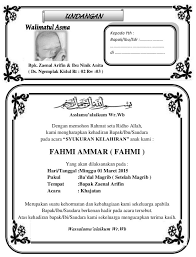 UNDANGAN
Walimatul Asma
Kepada Yth :
Bapak/Ibu/Sdr :
di
Bpk. Zaenal Arifin & Ibu Ninik Asita
( Ds. Ngemplak Kidul Rt : 02 Rw : 03 )
بسم الله الرحمن الرحيم
Assalamu'alaikum Wr.Wb
Dengan memohon Rahmat serta Ridho Allah,
kami mengharapkan kehadiran Bapak/Ibu/Saudara
pada acara "SYUKURAN KELAHIRAN" anak kami :
FAHMI AMMAR ( FAHMI )
Yang akan dilaksanakan pada :
Hari/Tanggal : Minggu 01 Maret 2015
Pukul : Ba'dal Magrib ( Setelah Magrib )
Tempat : Bapak Zaenal Arifin
Acara : Khajatan
Merupakan suatu kehormatan dan kebahagiaan kami sekeluarga apabila
Bapak/Ibu/Saudara berkenan hadir pada acara tersebut.
Atas kehadiran Bapak/Ibu/Saudara kami sekeluarga mengucapkan terima kasih.
Wassalamu'alaikum Wr.Wb